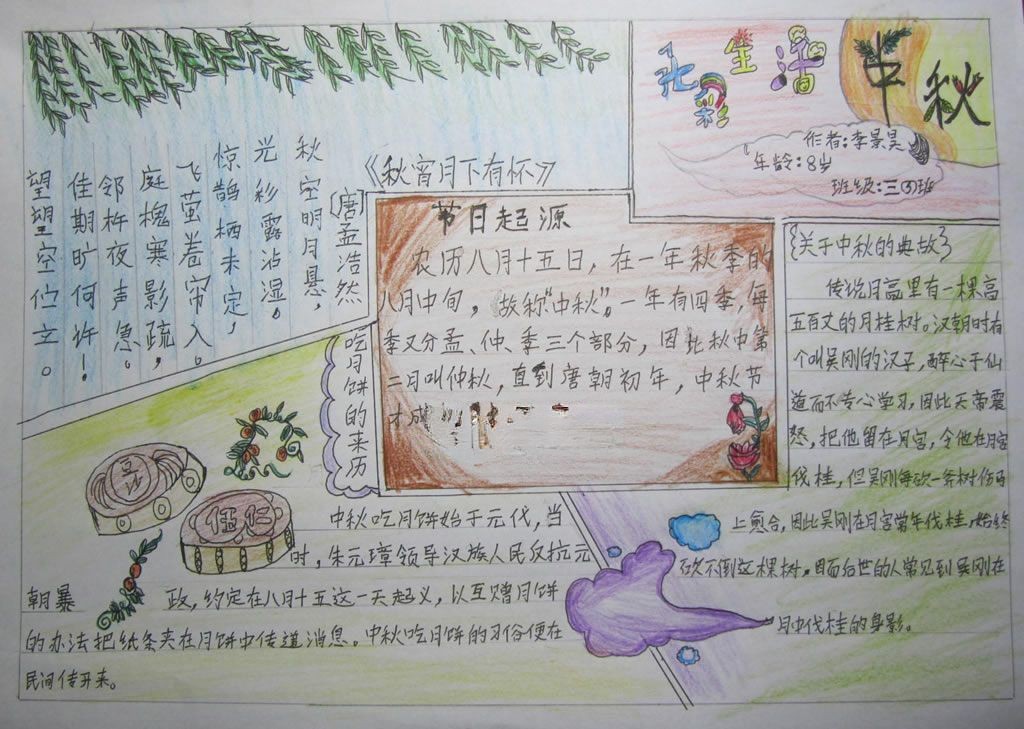 七彩生活
中秋
作者:李景昊
年龄:8岁
班级:三③班
《秋宵月下有怀》
〔唐〕孟浩然
秋空明月悬,
光彩露沾湿。
惊鹊栖未定,
飞萤卷帘入。
庭槐寒影疏,
邻杵夜声急。
佳期旷何许!
望望空伫立。
节日起源
农历八月十五日,在一年秋季的
八月中旬,故称"中秋"。一年有四季,每
季又分孟、仲、季三个部分,因此秋中第
二月叫仲秋,直到唐朝初年,中秋节
才成
{关于中秋的典故}
传说月亮里有一棵高
五百丈的月桂树。汉朝时有
个叫吴刚的汉子,醉心于仙
道而不专心学习,因此天帝震
怒,把他留在月宫,令他在月宫
伐桂,但吴刚每砍一斧树伤马
上愈合,因此吴刚在月宫常年伐桂,始终
砍不倒这棵树。因而后世的人常见到吴刚在
月中伐桂的身影。
吃月饼的来历
豆沙
伍仁
中秋吃月饼始于元代,当
时,朱元璋领导汉族人民反抗元
朝暴政,约定在八月十五这一天起义,以互赠月饼
的办法把纸条夹在月饼中传道消息。中秋吃月饼的习俗便在
民间传开来。